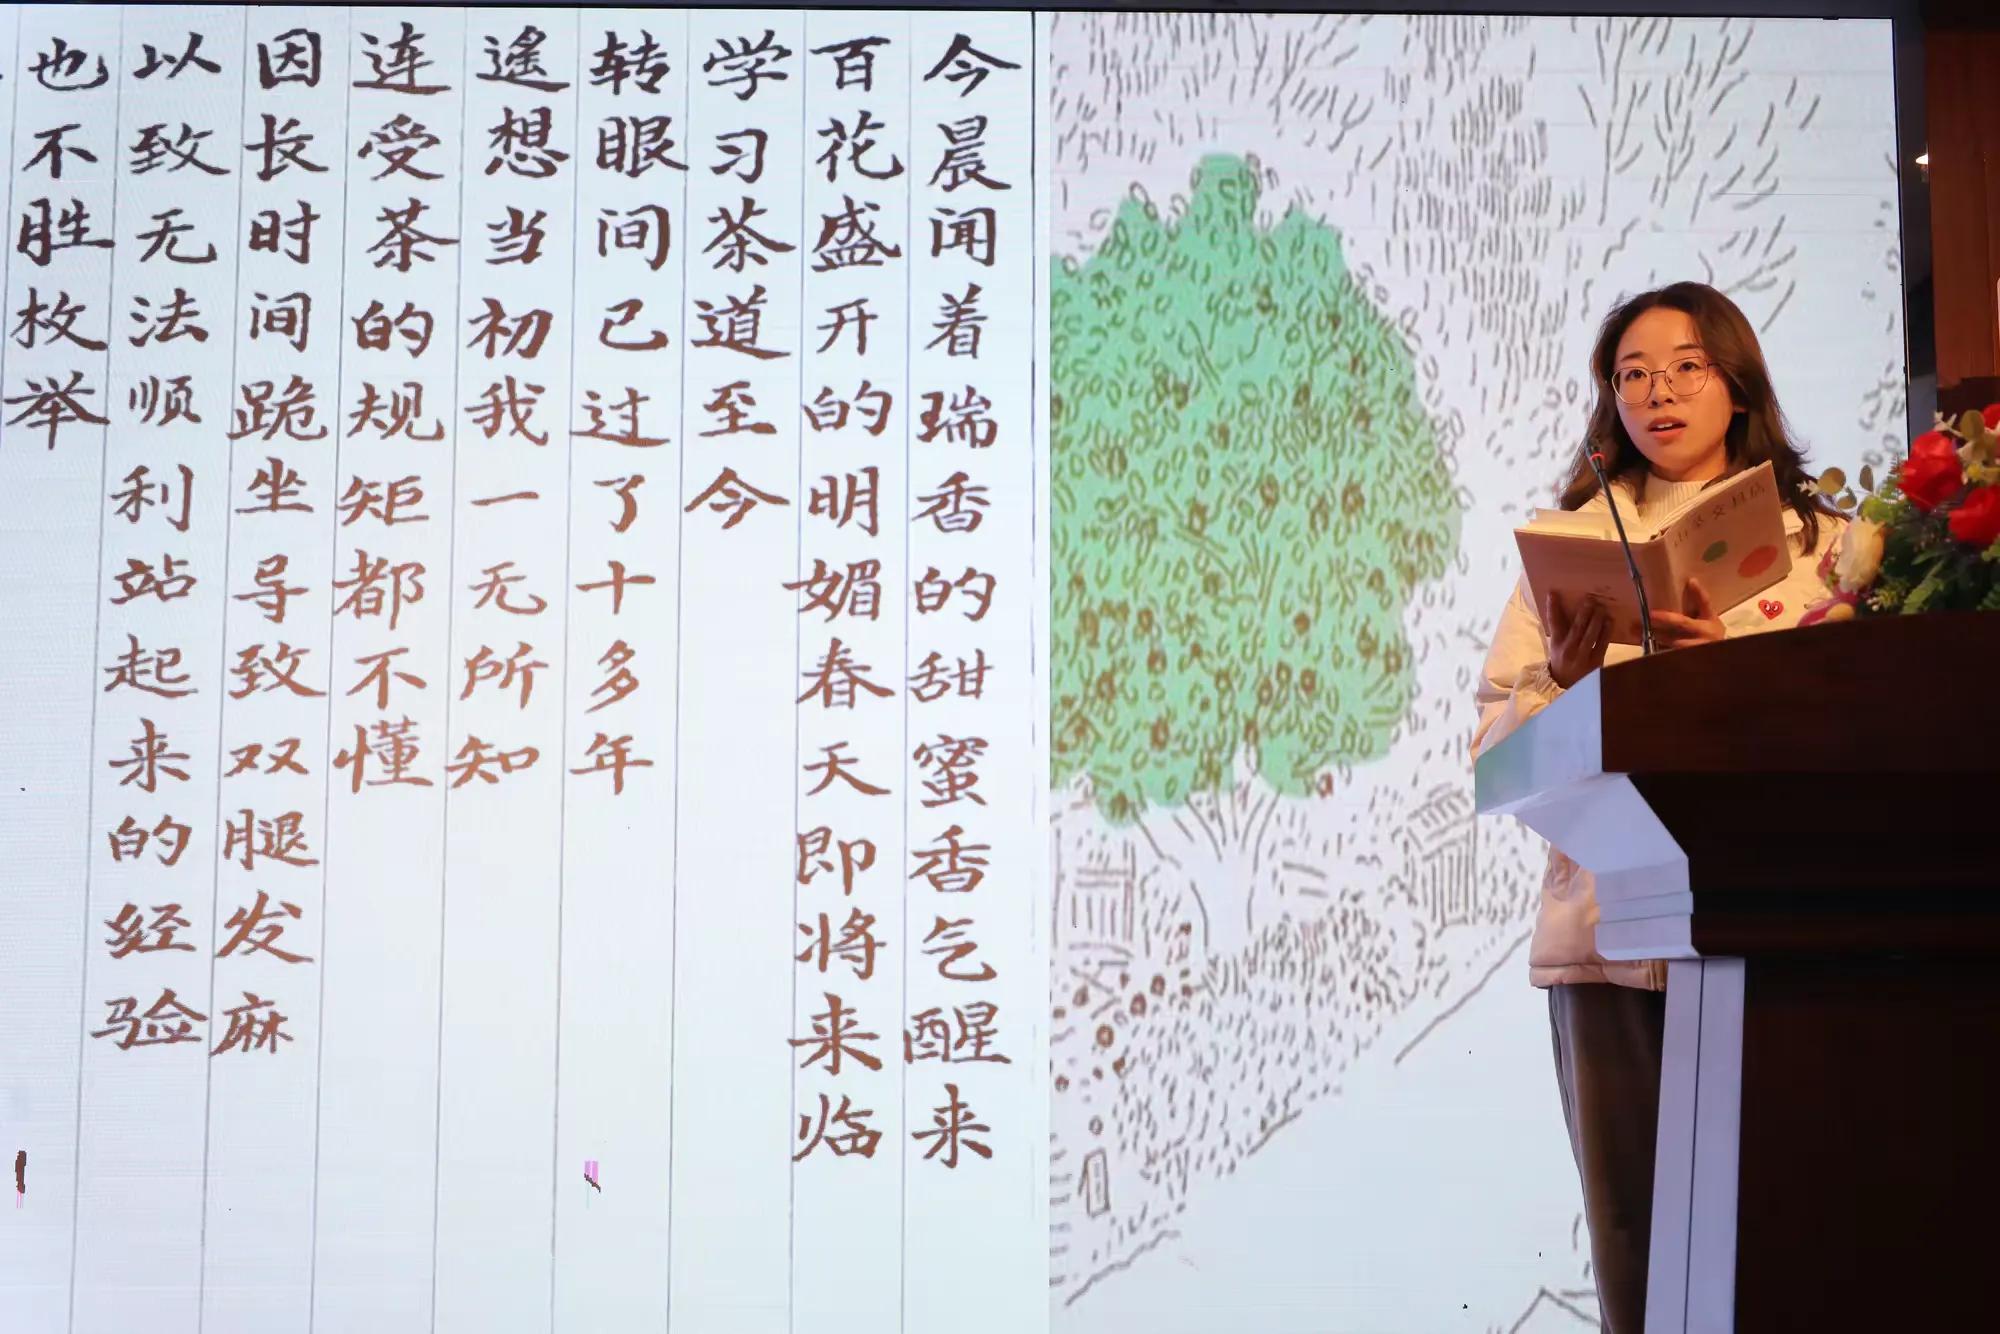 今晨闻着瑞香的甜蜜香气醒来
百花盛开的明媚春天即将来临
学习茶道至今
转眼间已过了十多年
遥想当初我一无所知
连受茶的规矩都不懂
因长时间跪坐导致双腿发麻
以致无法顺利站起来的经验
也不胜枚举
山茶文具店